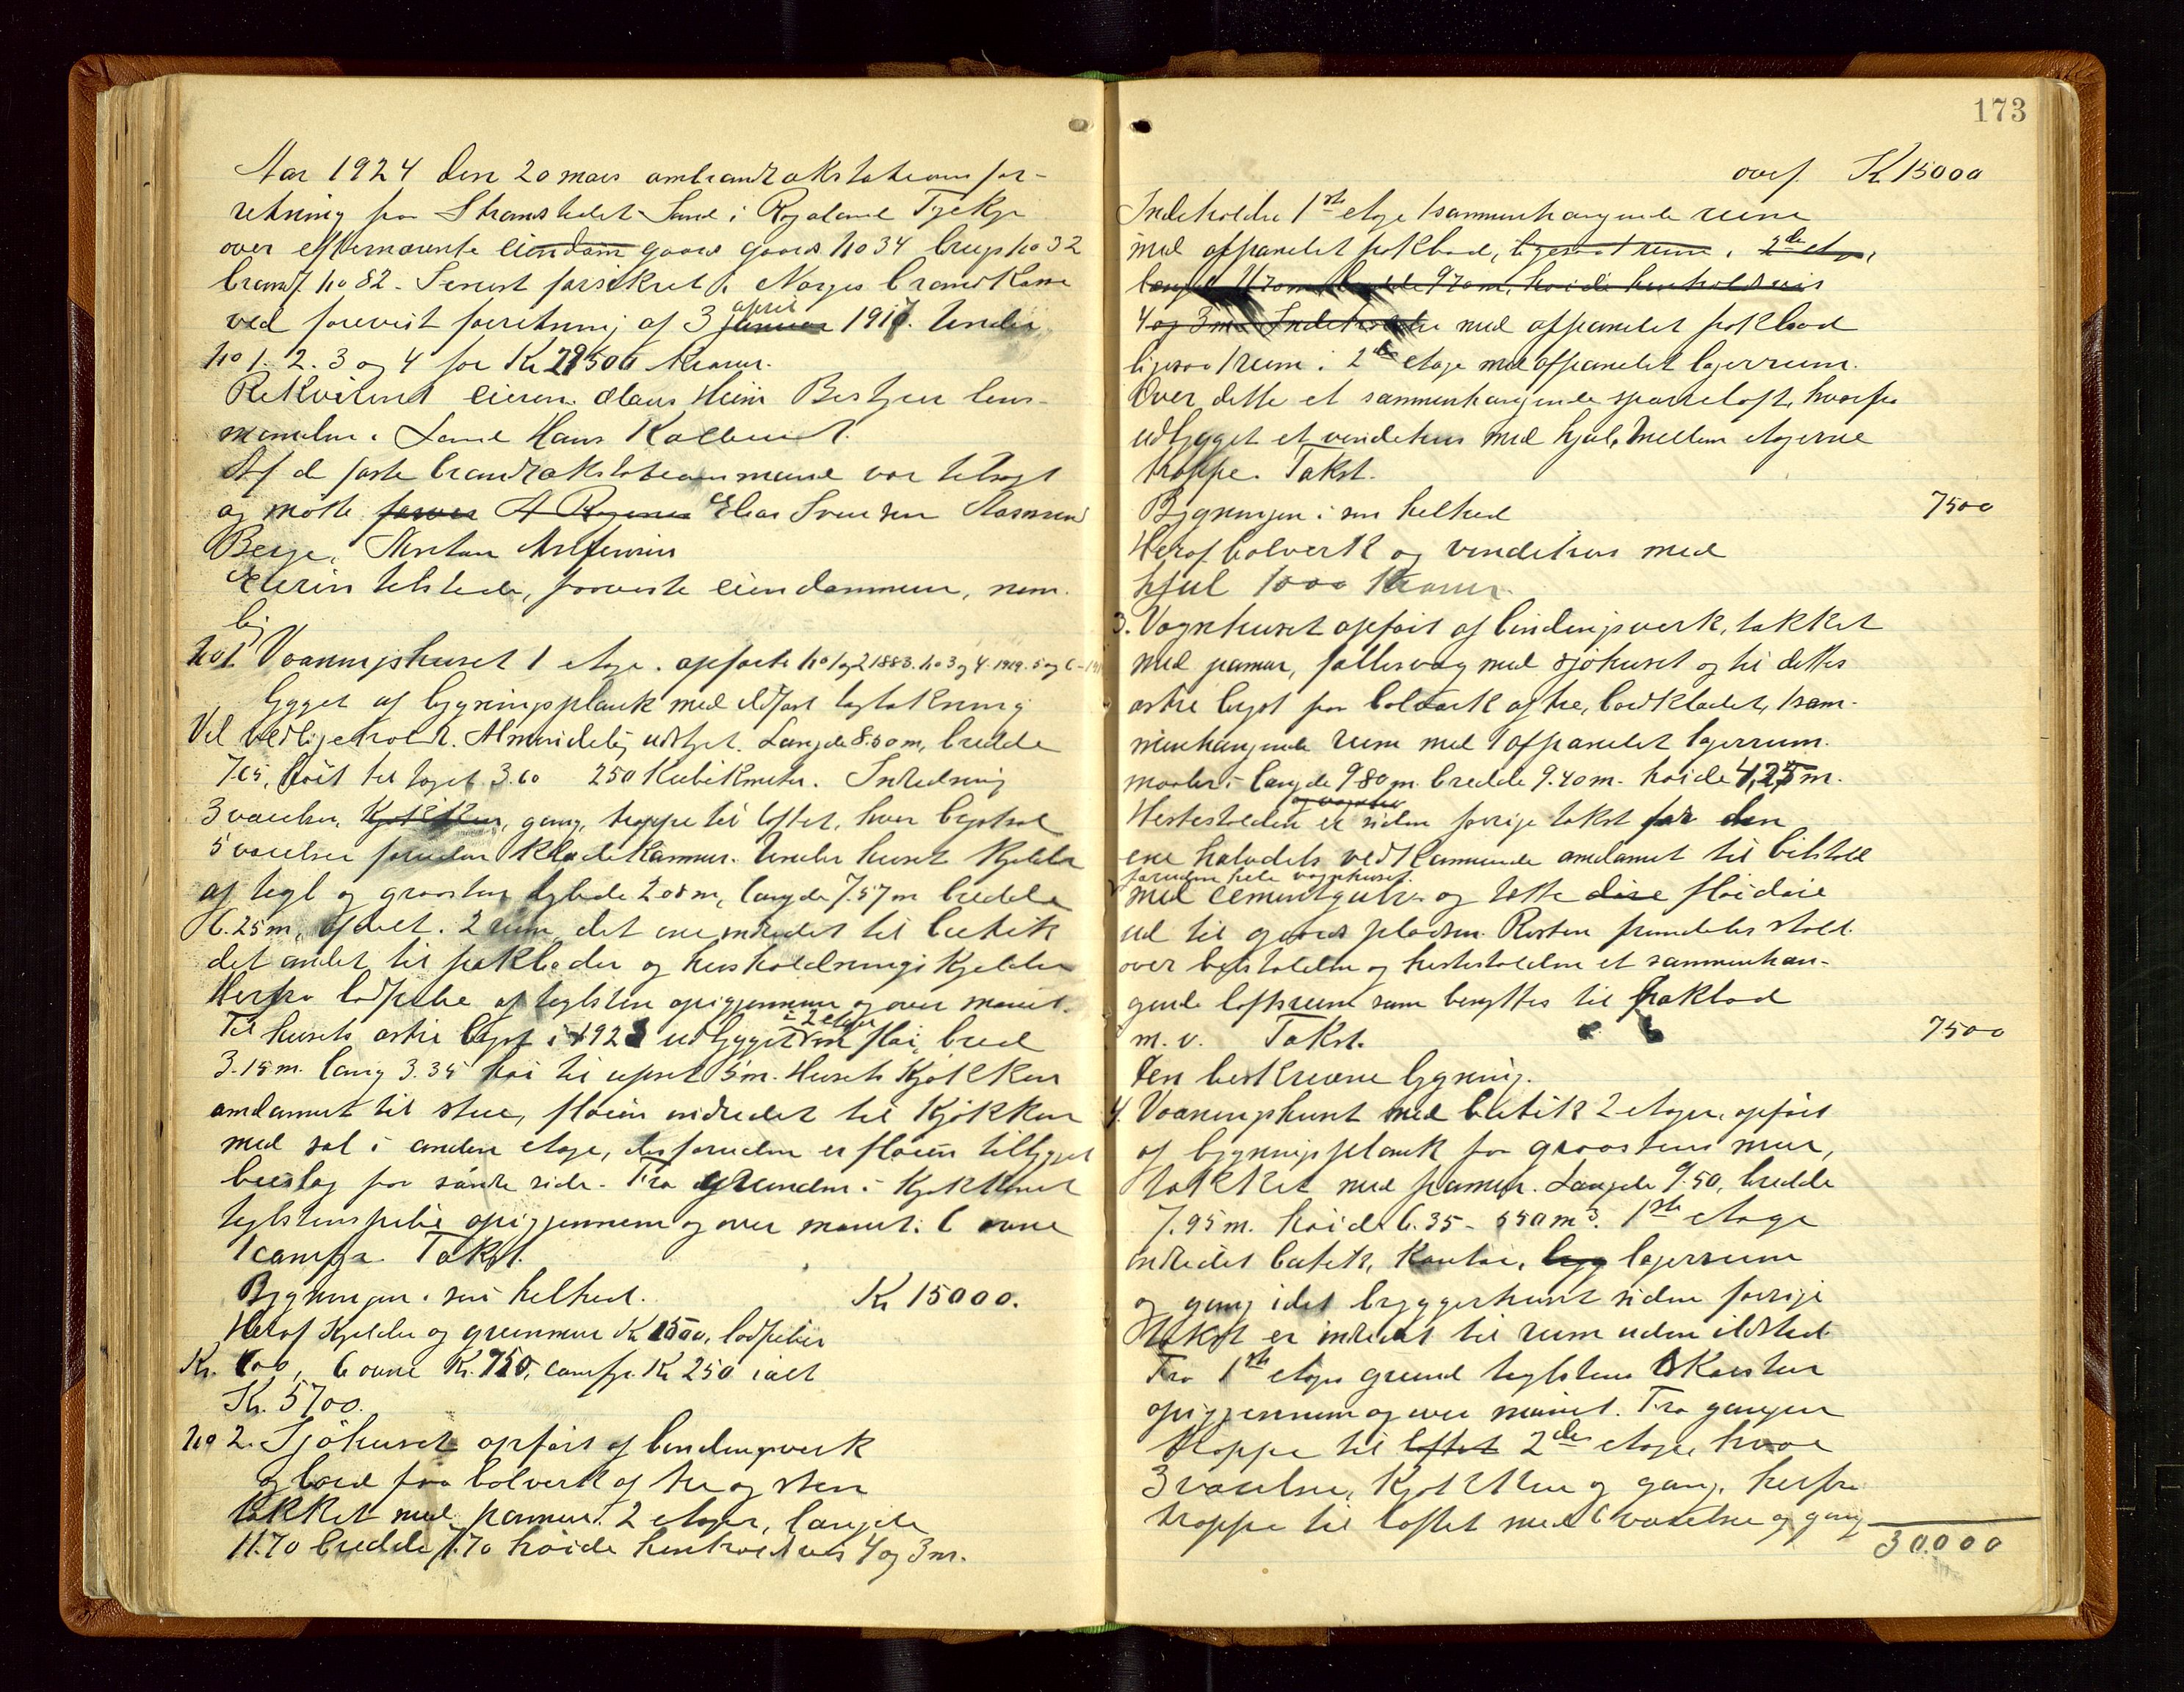 Aar 1924 den 20 mars ombrandtakstationsfor-
retning paa Strandstedet Sand i Rogaland Fylke
over efternævnte eiendom gaard gaards no 34 brugs no 32
brandf. no 82. Senest forsikret i Norges brandkasse
ved forevist forretning af 3 april januar 1917. Under
no 1. 2. 3 og 4 for Kr 29500 Kroner.
Rekvirent eieren Claus Heiin Bestyrer lens-
manden i Sand Hans Kolbeinst.
Af de faste brandtakstationsmænd var tilsagt
og mötte A Elias Svensen Rasmus
Berge,
Eieren tilstede, foreviste eiendommen, nem-
lig
No 1. Vaaningshuset 1 etage. opførte no 1 og 2 1883. no 3 og 4. 1919. 5 og 6 -
bygget af bygningsplank med ildfast tagtækning
Vel vedligeholdt. Almindelig udstyr. Længde 8.50 m, bredde
7.65, höit til taget 3.60 250 Kubikmeter. Indredning
3 værelser, Kjökken, gang, trappe til loftet, hvor
5 værelser foruden Klædekammer. Under huset Kjelder
af tegl og graasten dybde 2 08 m, længde 7.57 m bredde
6.25 m, afdelt i 2 rum, det ene indredet til butik
det andet til pakboder og husholdningskjelder
Herfra lodpibe af teglsten opigjennem og over mönet.
Til husets østre i 192 udbygget i 2 etager en flöi, bred
3.15 m. lang 3.35 höi til 5 m. Husets Kjökken
omdannet til stue, flöien indredet til Kjökken
med sal i anden etage, desforuden er flöien tilbygget
beislag paa söndre side. Fra grunden i Kjökkenet
teglstenspibe opigjennem og over mönet. 6 ovne
1 comfyr. Takst.
Bygningen i sin helhed. Kr 15000.
Heraf Kjelder og grunmur Kr 1500, lodpiber
Kr. 600, 6 ovne Kr. 750, comfyr. Kr 250 ialt
Kr. 5700.
No 2. Sjöhuset opført af bindingsverk
og bord paa bolverk af træ og sten
tækket med panner. 2 etager, længde
11.70 bredde 7.70 höide henholdsvis 4 og 3 m.
173
overf. Kr 15000
Indeholder 1ste etage 1 sammenhængende rum
med afpanelet pakbod, ligesaa 1 rum. 2de etage,
længde 11.70 m, bredde 970 m, höide henholdsvis
4 og 3 m. Indeholder med afpanelet pakbod
ligesaa 1 rum i 2de etage med afpanelet lagerrum.
Over dette et sammenhængende sparreloft, hvorfra
udbygget et vindehus med hjul, mellem etagerne
trappe. Takst.
Bygningen i sin helhed 7500
Heraf bolverk og vindehus med
hjul 1000 Kroner.
3. Vognhuset opfört af bindingsverk, tækket
med panner, fællesvæg med sjöhuset og til dettes
østre bygt paa bolverk af træ, bordklædet, 1 sam-
menhængende rum med 1 afpanelet lagerrum.
maaler i længde 980 m. bredde 9.40 m. höide 4,25 m.
Hestestalden og vognhus er siden forrige takst for den
ene halvdels vedkommende omdannet til bilstald
foruden hele vognhuset
med cementgulv og tætte döre flöidöre
ud til gaards pladsen. Resten fremdeles stald.
over bilstalden og hestestalden et sammenhæn-
gende loftsrum som benyttes til pakbod
m. v. Takst. 7500
Den beskrevne bygning.
4. Vaaningshuset med butik 2 etager, opfört
af bygningsplank paa graastens mur,
tækket med panner. Længde 9.50, bredde
7.95 m. höide 6.35 - 550 m3. 1ste etage
indredet butik, Kontor, lag lagerrum
og gang idet bryggerhuset siden forrige
takst er indredet til rum uden ildsted.
Fra 1ste etages grund teglstens skorsten
opigjennem og over mönet. Fra gangen
trappe til loftet 2den etage, hvor
3 værelser, Kjökken og gang, herfra
trappe til loftet med 6 værelser og gang
30.000